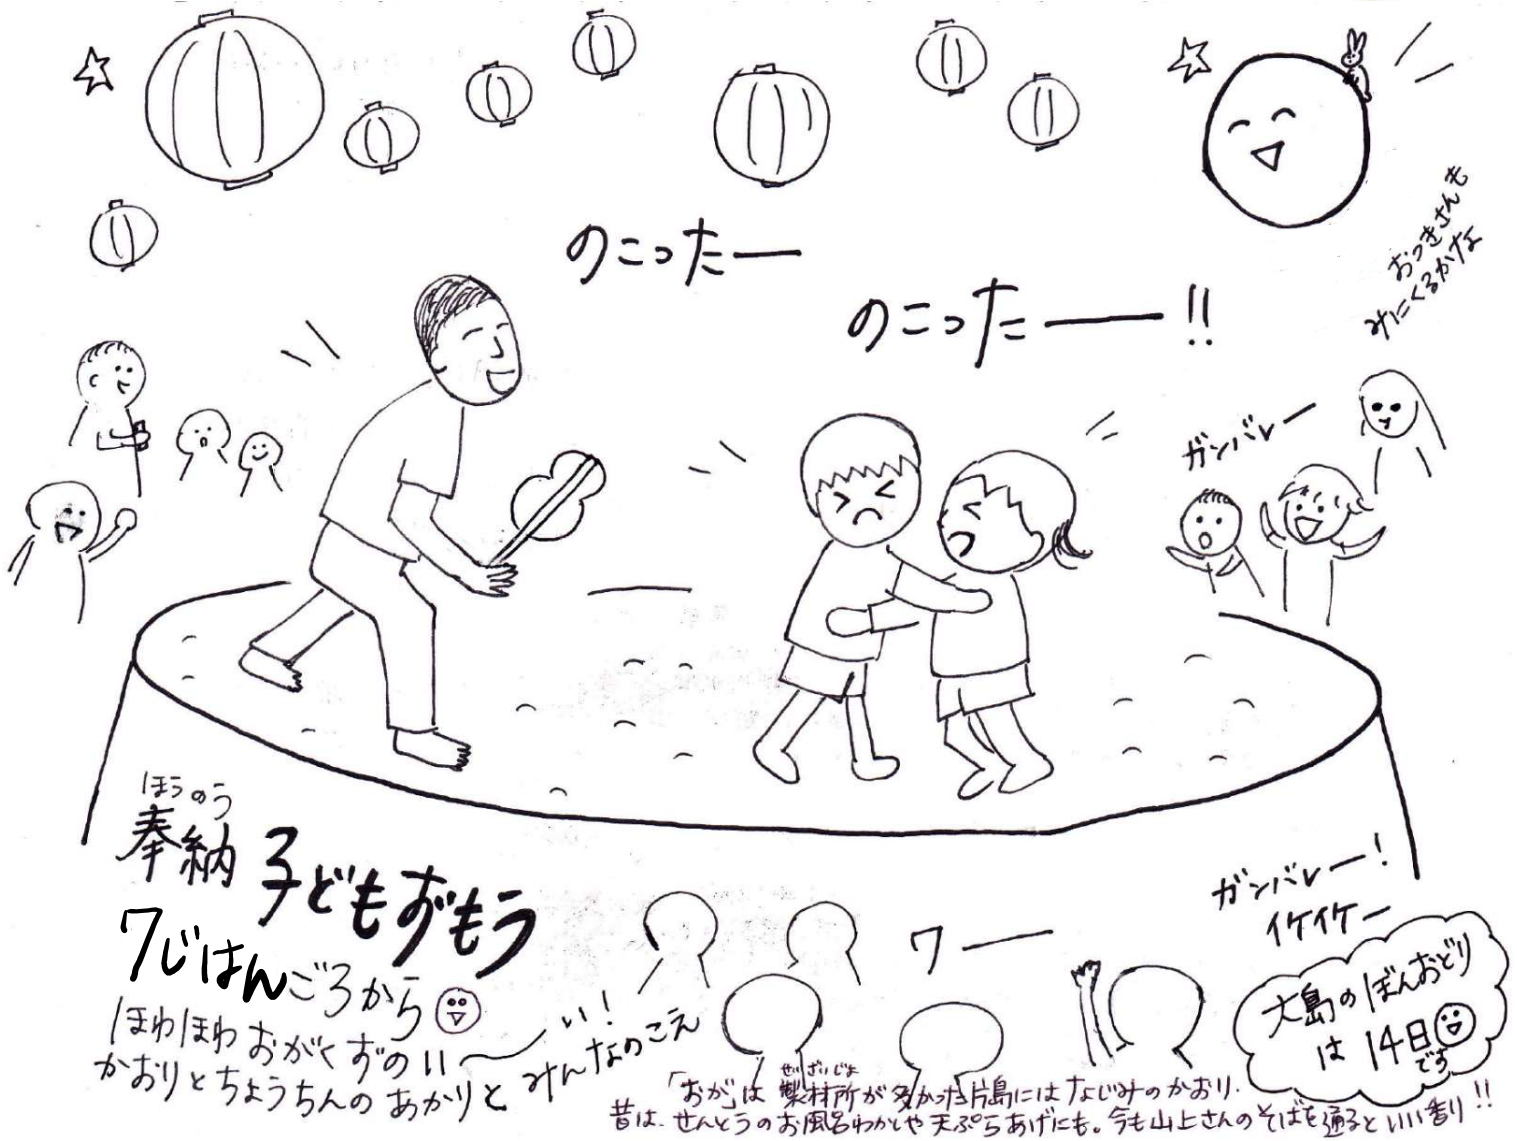 のこったー
のこったー!!
おつきさんも
みにくるかな
ガンバレー
ほうのう
奉納 子どもずもう
7じはんごろから
ほわほわ おがくずのい〜い!
かおりとちょうちんのあかりと みんなのこえ
ワー
ガンバレー!
イケイケー
大島のぼんおどり
は 14日
です
せいざいじょ
「おが」は 製材所が多かった片島にはなじみのかおり.
昔は、せんとうのお風呂わかしや天ぷらあげにも。今も山上さんのそばを通るといい香り!!